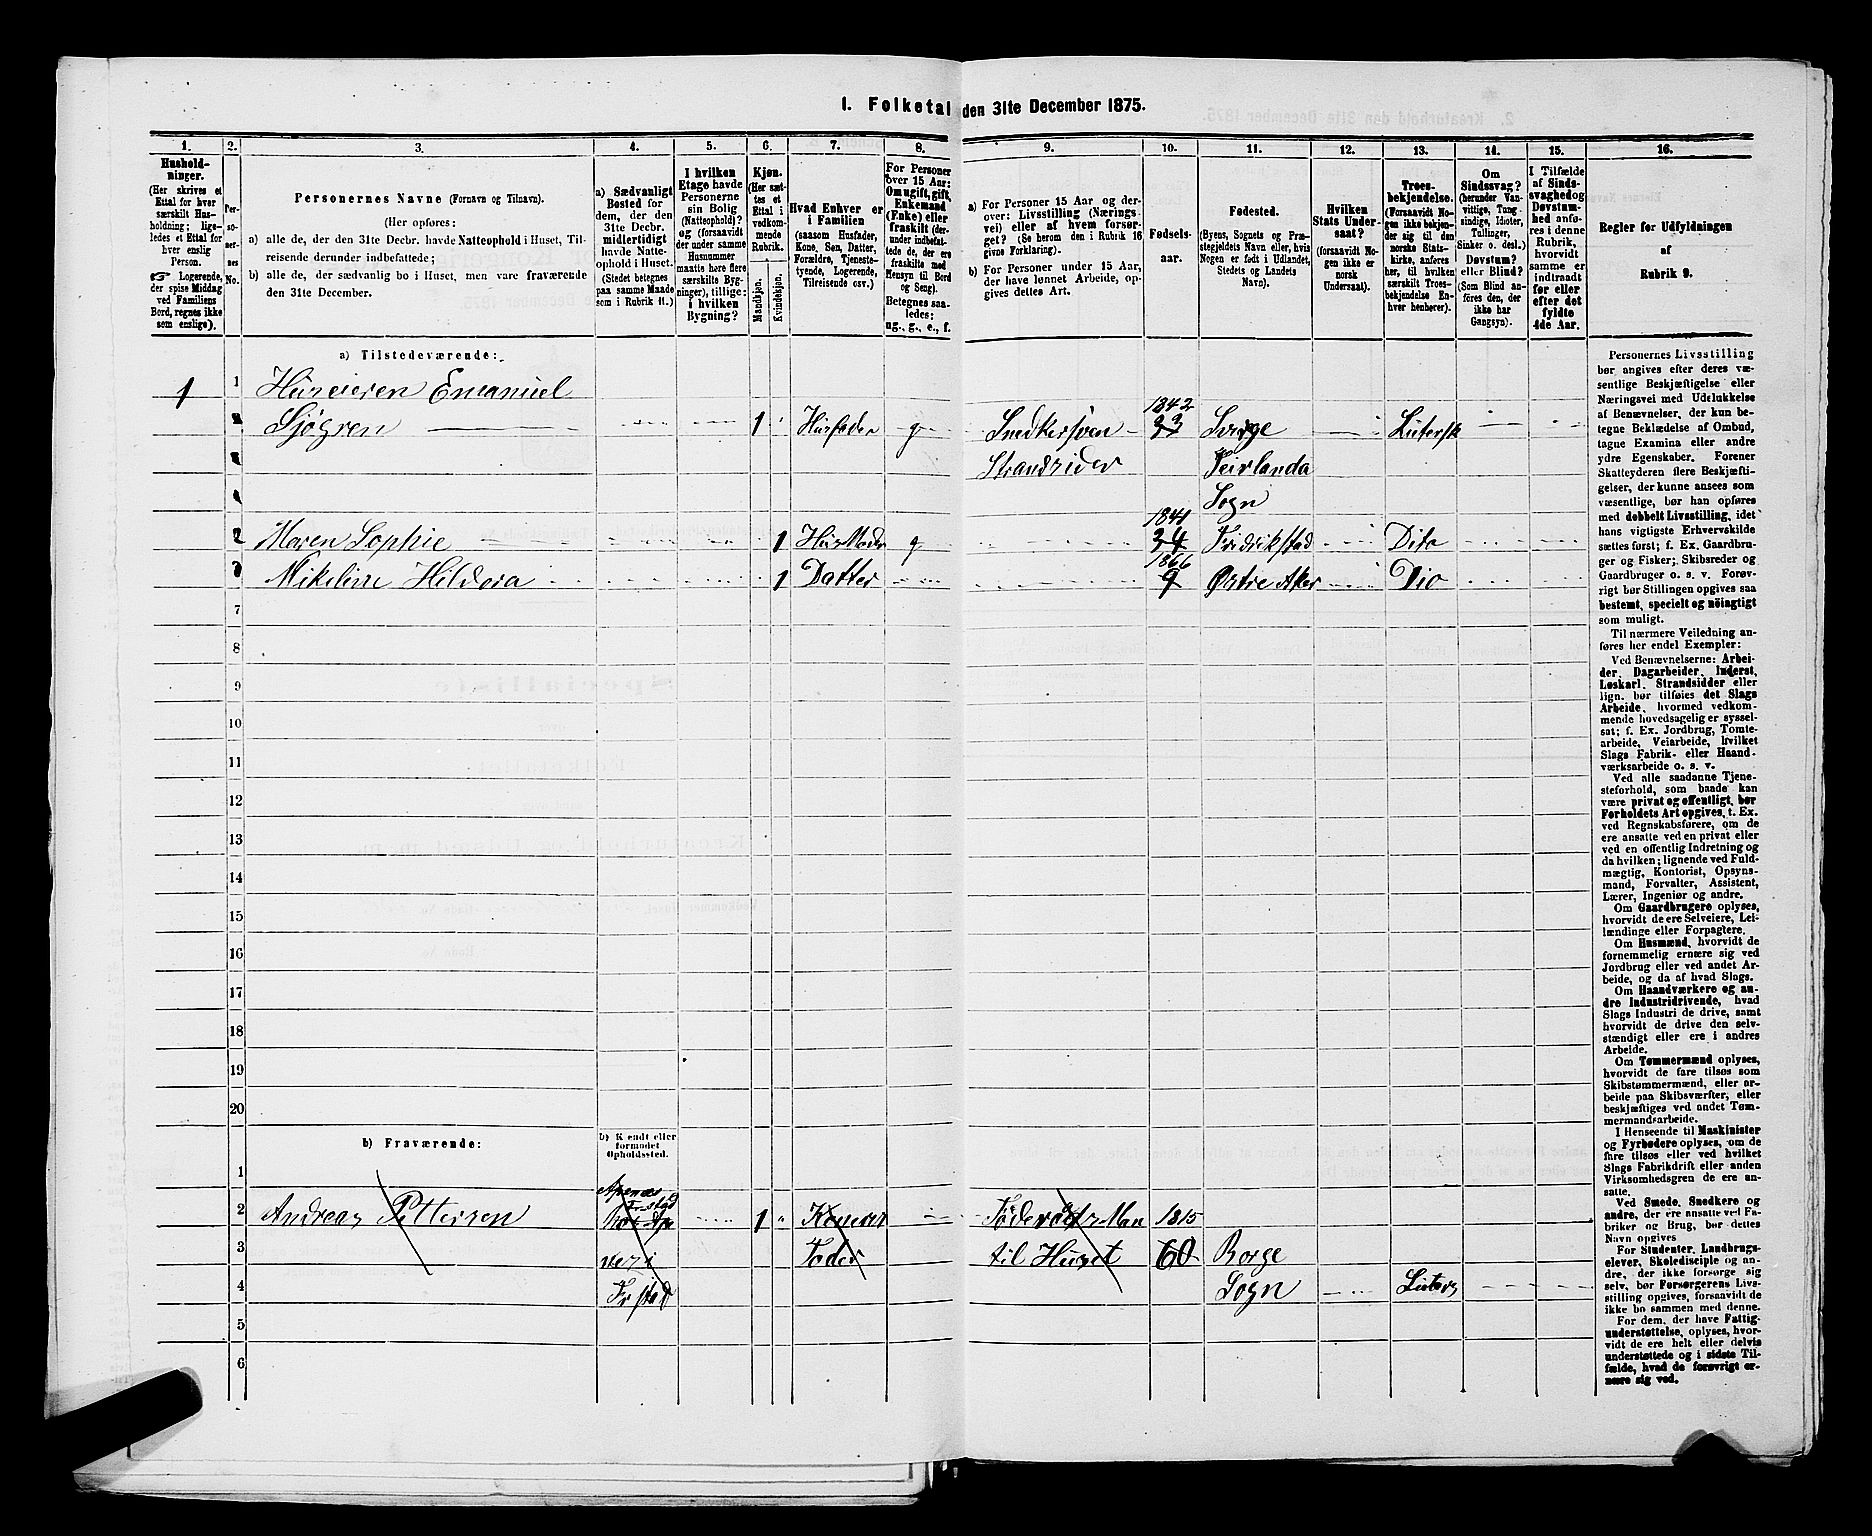 1. Folketal den 31te December 1875.
1. 2. 3. 4. 5. 6. 7. 8. 9. 10. 11. 12. 13. 14. 15. 16.
Hushold-
ninger.
(Her skrives et
Ettal for hver
særskilt Hus-
holdning; lige-
ledes et Ettal for
hver enslig
Person.
☞ Logerende,
der spise Middag
ved Familiens
Bord, regnes ikke
som enslige).
Per-
so-
ner-
nes
No.
Personernes Navne (Fornavn og Tilnavn).
(Her opføres:
a) alle de, der den 31te Decbr. havde Natteophold i Huset, Til-
reisende derunder indbefattede;
b) alle de, der sædvanlig bo i Huset, men vare fraværende
den 31te December.
a) Sædvanligt
Bosted for
dem, der den
31te Decbr.
midlertidigt
havde Natte-
ophold i Huset.
(Stedet betegnes
paa samme Maade
som i Rubrik 11.)
I hvilken
Etage havde
Personerne
sin Bolig
(Natteophold)?
og (forsaavidt
der under samme
Husnummer
maatte høre flere
særskilte Byg-
ninger), tillige: i
hvilken
Bygning?
Kjøn.
(Her sæt-
tes et
Ettal i
vedkom-
mende
Rubrik.
Mandkjøn.
Kvindekjøn.
Hvad Enhver er
i Familien
(saasom Husfader,
Kone, Søn, Datter,
Forældre, Tjeneste-
tyende, Logerende,
Tilreisende osv.)
For Personer
over 15 Aar:
Om ugift, gift,
Enkemand
(Enke) eller
fraskilt (der-
under indbefat-
tede de, der ere
fraskilte med
Hensyn til Bord
og Seng).
Betegnes saa-
ledes:
ug., g., e., f.
a) For Personer 15 Aar og der-
over: Livsstilling (Nærings-
vei) eller af hvem forsør-
get? (Se herom den i Rubrik 16
givne Forklaring).
b) For Personer under 15 Aar,
der have lønnet Arbeide, op-
gives dettes Art.
Fødsels-
aar.
Fødested.
(Byens, Sognets og Præ-
stegjeldets Navn eller, hvis
Nogen er født i Udlandet,
Stedets og Landets
Navn).
Hvilken
Stats Under-
saat?
(forsaavidt No-
gen ikke er
norsk
Undersaat).
Troes-
bekjendelse.
(Forsaavidt No-
gen ikke bekjen-
der sig til den
norske Stats-
kirke, anføres
her, til hvilken
særskilt Troes-
bekjendelse En-
hver henhører).
Om
Sindssvag?
(herunder Van-
vittige, Tung-
sindige, Idioter,
Tullinger,
Sinker o. desl.)
Døvstum?
eller Blind?
(Som Blind an-
føres den, der
ikke har
Gangsyn).
I Tilfælde
af Sinds-
svaghed og
Døvstum-
hed anfø-
res i denne
Rubrik,
hvorvidt
samme er
indtraadt
før eller
efter det
fyldte
4de Aar.
Regler for Udfyldningen
af
Rubrik 9.
a) Tilstedeværende:
1 1 Huseieren Emanuel
Sjøgren 1 Husfader g Snedkersven 1842 33 Sverge Lutersk
Strandsider Veirlanda
Sogn
2 Maren Sophie 1 HusModer g 1841 34 Fredrikstad Dito
3 Mikeline Hildera 1 Datter 1866 9 Østre Aker Dio
7
8
9
10
11
12
13
14
15
16
17
18
19
20
b) Fraværende:
b) Kjendt eller
formodet
Opholdssted.
1
2 Andreas Pettersen 1 1815
3 Fader til Huset 60 Borge
4 Frstad Sogn Luters
5
6
Personernes Livsstilling
bør angives efter deres væ-
sentlige Beskjæftigelse eller
Næringsvei med Udelukkelse
af Benævnelser, der kun be-
tegne Beklædelse af Ombud,
tagne Examina eller andre
ydre Egenskaber. Forener
Skatteyderen flere Beskjæfti-
gelser, der kunne ansees som
væsentlige, bør han opføres
med dobbelt Livsstilling, idet
hans vigtigste Erhvervskilde
sættes først; f. Ex. Gaardbru-
ger og Fisker; Skibsreder og
Gaardbruger o. s. v. Forøv-
rigt bør Stillingen opgives saa
bestemt, specielt og nöiagtigt
som muligt.
Til nærmere Veiledning an-
føres her endel Exempler:
Ved Benævnelserne: Arbei-
der, Dagarbeider, Inderst,
Løskarl, Strandsidder eller
lign. bør tilføies det Slags
Arbeide, hvormed vedkom-
mende hovedsagelig er syssel-
sat; f. Ex. Jordbrug, Tomte-
arbeide, Veiarbeide, hvilket
Slags Fabrik- eller Haand-
værksarbeide o. s. v.
Ved alle saadanne Tjene-
steforhold, som baade kan
være privat og offentligt, bør
Forholdets Art opgives, t. Ex.
ved Regnskabsførere, om de
ere ansatte ved en privat eller
ved en offentlig Indretning og
da hvilken; lignende ved Fuld-
mægtig, Kontorist, Opsyns-
mand, Forvalter, Assistent,
Lærer, Ingeniør og andre.
Om Gaardbrugere oplyses,
hvorvidt de ere Selveiere, Lei-
lændinge eller Forpagtere.
Om Husmænd, hvorvidt de
fornemmelig ernære sig ved
Jordbrug eller ved andet Ar-
beide, og da af hvad Slags.
Om Haandværkere og an-
dre Industridrivende, hvad
Slags Industri de drive, samt
hvorvidt de drive den selv-
stændigt eller ere i andres
Arbeide.
Om Tømmermænd oplyses,
hvorvidt de fare tilsøs som
Skibstømmermænd, eller ar-
beide paa Skibsværfter, eller
beskjæftiges ved andet Tøm-
mermandsarbeide.
I Henseende til Maskinister
og Fyrbødere oplyses, om de
fare tilsøs eller ved hvilket
Slags Fabrikdrift eller anden
Virksomhedsgren de ere an-
satte.
Ved Smede, Snedkere og
andre, der ere ansatte ved Fa-
briker og Brug, bør dettes
Navn opgives
For Studenter, Landbrugs-
elever, Skoledisciple og an-
dre, der ikke forsørge sig
selv, bør Forsørgerens Livs-
stilling opgives, forsaavidt de
ikke bo sammen med denne.
For dem, der have Fattig-
understøttelse, oplyses, hvor-
vidt de ere helt eller delvis
understøttede og i sidste Til-
fælde, hvad de forøvrigt er-
nære sig ved.